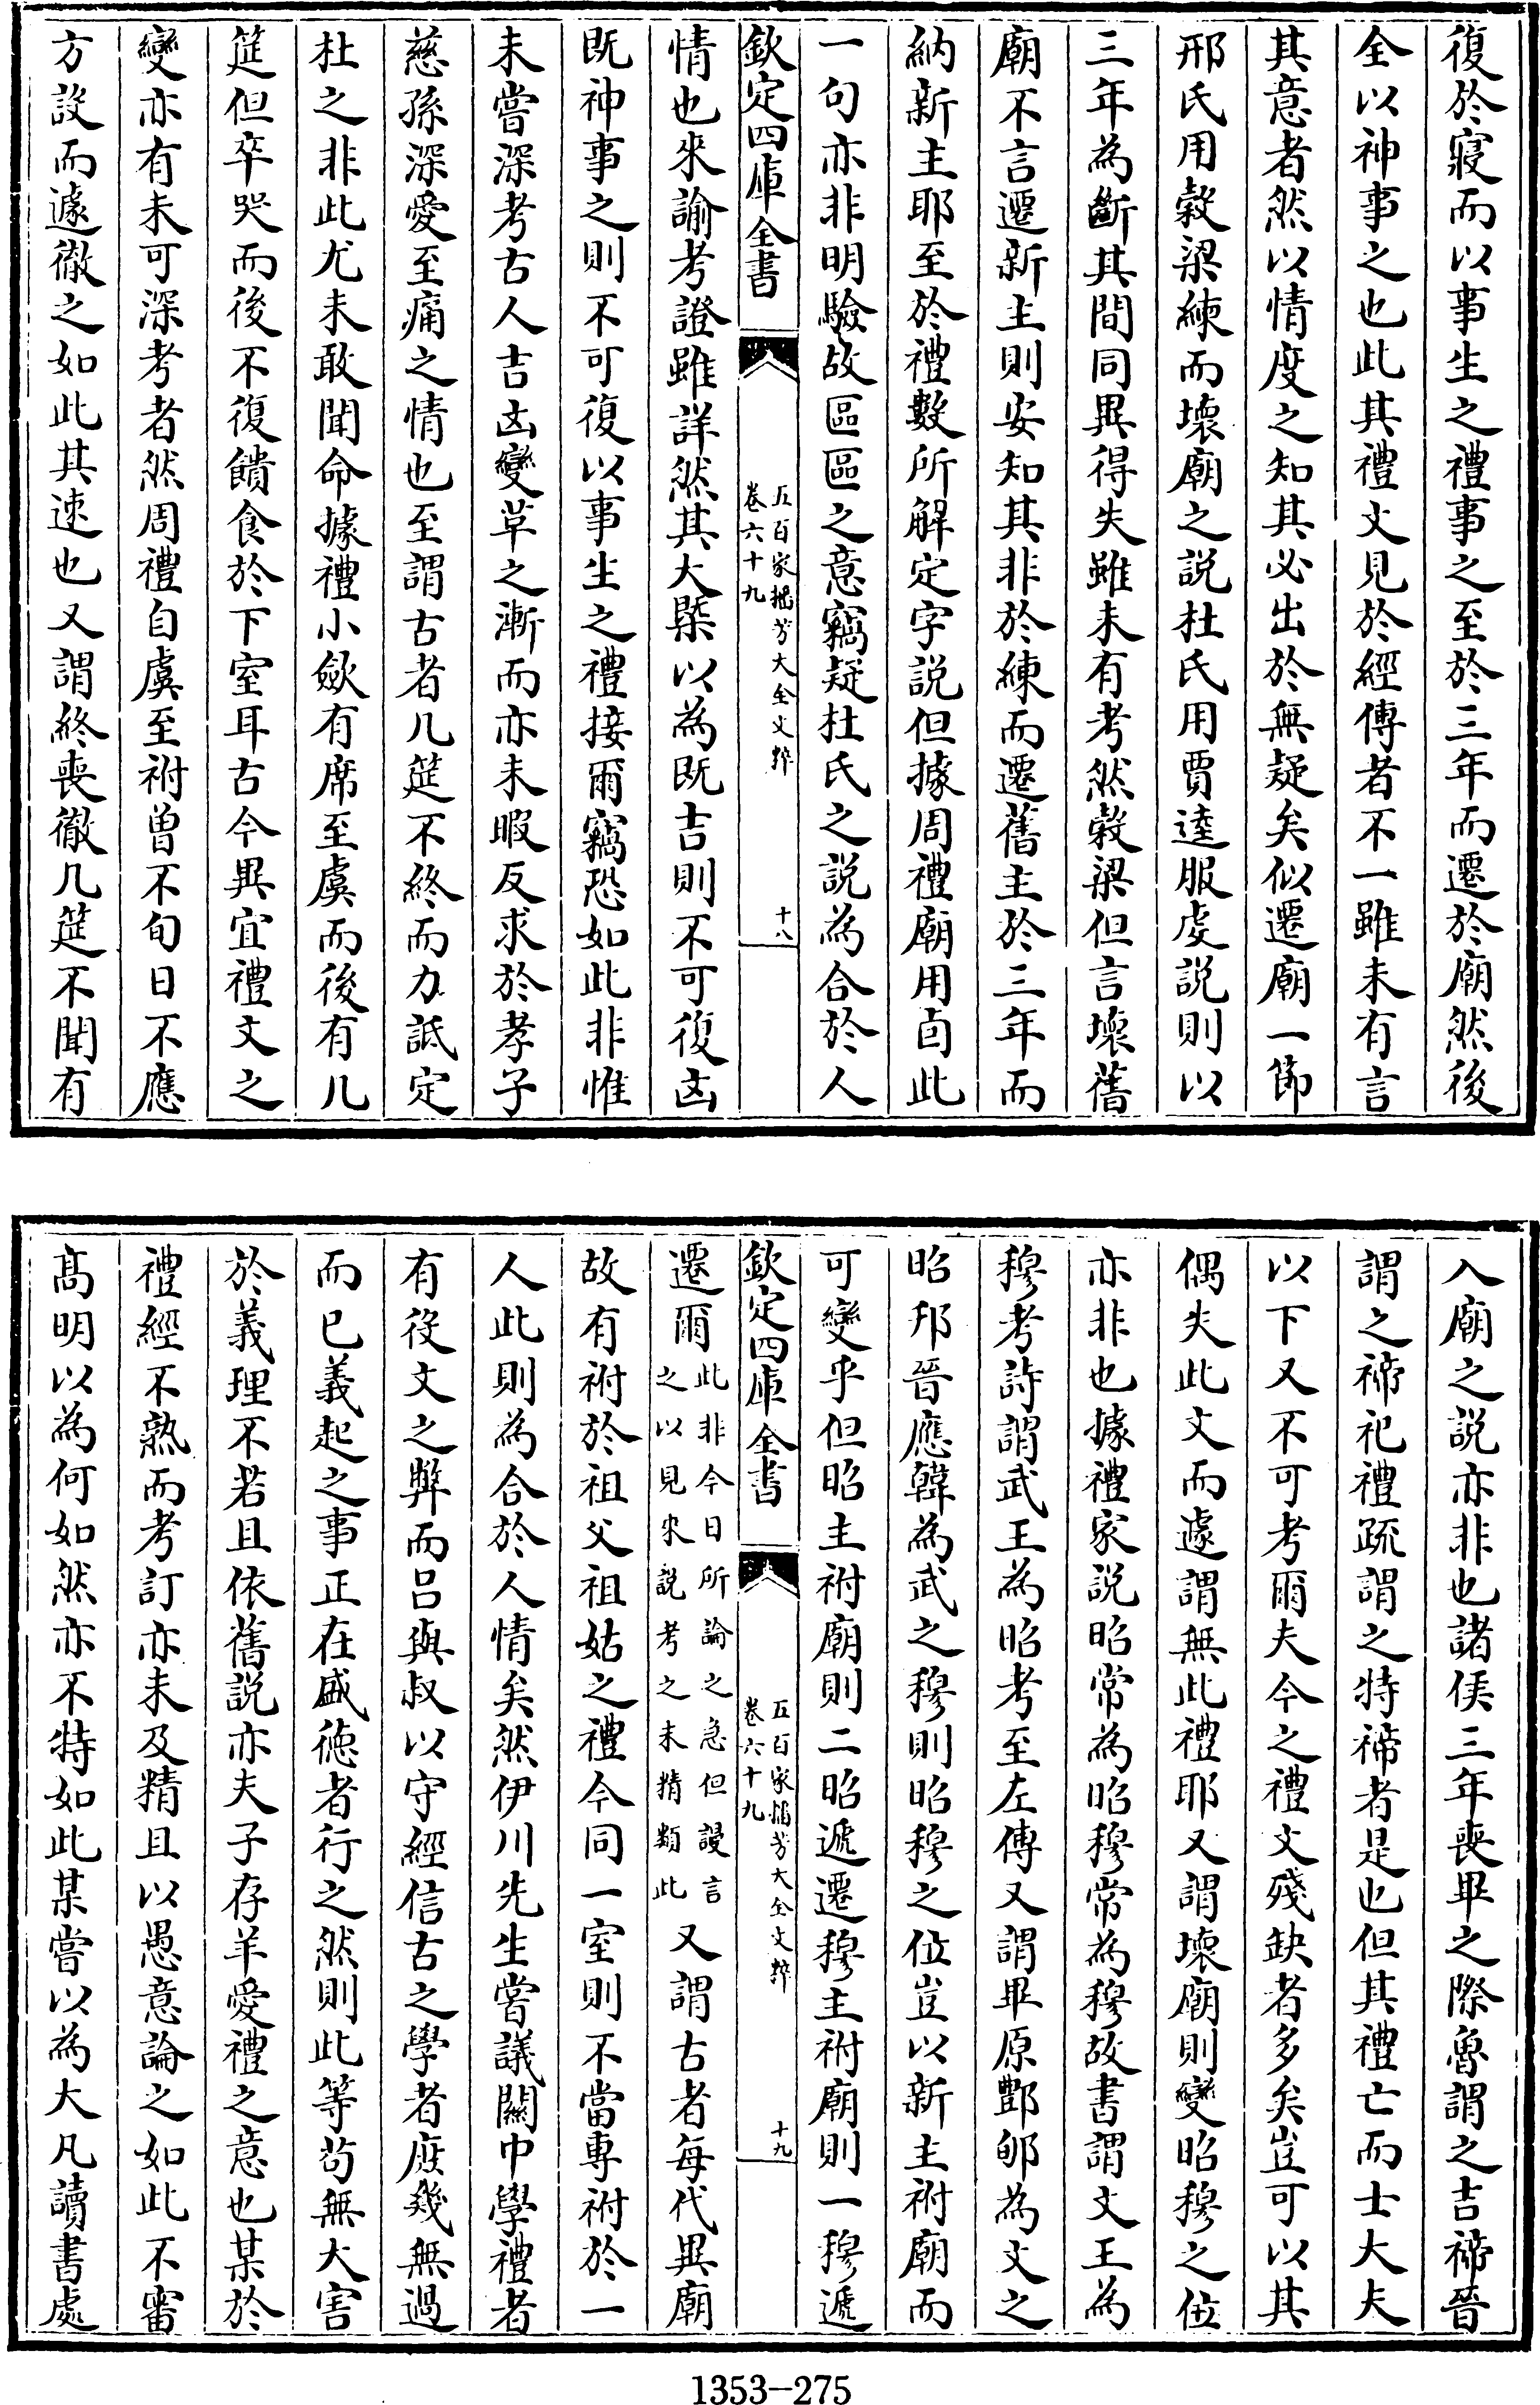 復於寢而以事生之禮事之至於三年而遷於廟然後
全以神事之也此其禮文見於經傳者不一雖未有言
其意者然以情度之知其必出於無疑矣似遷廟一節
邢氏用榖梁練而壞廟之説杜氏用賈逵服虔説則以
三年為斷其間同異得失雖未有考然榖梁但言壞舊
廟不言遷新主則安知其非於練而遷舊主於三年而
納新主耶至於禮數所解定字説但據周禮廟用卣此
一句亦非明驗故區區之意竊疑杜氏之説為合於人
欽定四庫全書
五百家播芳大全文粹
卷六十九
十八
情也來諭考證雖詳然其大槩以為既吉則不可復凶
既神事之則不可復以事生之禮接爾竊恐如此非惟
未嘗深考古人吉凶變革之漸而亦未暇反求於孝子
慈孫深愛至痛之情也至謂古者几筵不終而力詆定
杜之非此尤未敢聞命據禮小歛有席至虞而後有几
筵但卒哭而後不復饋食於下室耳古今異宜禮文之
變亦有未可深考者然周禮自虞至祔曾不旬日不應
方設而遽徹之如此其速也又謂終喪徹几筵不聞有
入廟之説亦非也諸侯三年喪畢之際魯謂之吉禘晉
謂之禘祀禮疏謂之特禘者是也但其禮亡而士大夫
以下又不可考爾夫今之禮文殘缺者多矣豈可以其
偶失此文而遽謂無此禮耶又謂壞廟則變昭穆之位
亦非也據禮家説昭常為昭穆常為穆故書謂文王為
穆考詩謂武王為昭考至左傳又謂畢原酆郇為文之
昭邘晉應韓為武之穆則昭穆之位豈以新主祔廟而
可變乎但昭主祔廟則二昭遞遷穆主祔廟則一穆遞
欽定四庫全書
五百家播芳大全文粹
卷六十九
十九
遷爾此非今日所論之急但謾言之以見來説考之未精類此又謂古者每代異廟
故有祔於祖父祖姑之禮今同一室則不當専祔於一
人此則為合於人情矣然伊川先生嘗議關中學禮者
有役文之弊而吕與叔以守經信古之學者庶幾無過
而已義起之事正在盛徳者行之然則此等茍無大害
於義理不若且依舊説亦夫子存羊愛禮之意也某於
禮經不熟而考訂亦未及精且以愚意論之如此不審
髙明以為何如然亦不特如此某嘗以為大凡讀書處
1353-275